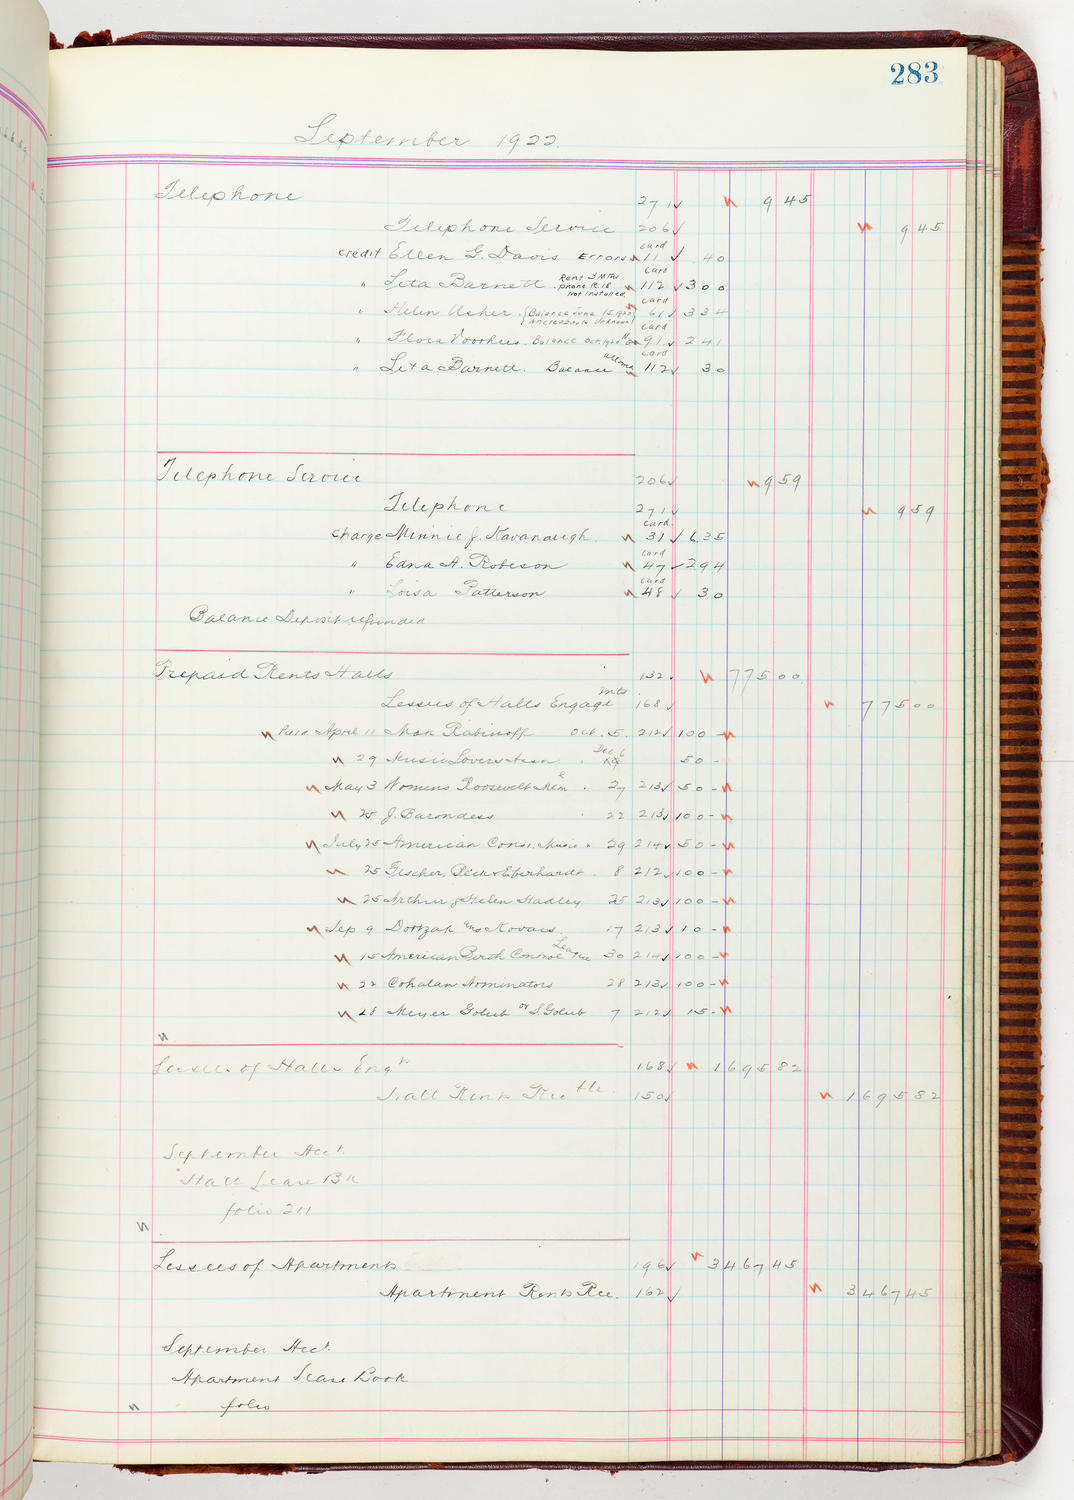 283
September 1922.
Telephone 271 9 45
Telephone Service 206 9 45
card
credit Ellen G. Davis Errors 11 .40
card
" Lita Barnett. Rent 3 Mths phone R.18 Not installed 112 3 00
card
" Helen Usher. (Balance June 15, 1920 whereabouts unknown) 61 3 34
card
" Flora Voorhees. Balance Oct. 1920 91 2 41
card
" Lita Barnett. Balance allowed 112 30
Telephone Service 206 9 59
Telephone 271 9 59
card
charge Minnie J. Kavanaugh. 31 6.35
card
" Edna A. Robeson 47 2 94
card
" Loisa Patterson 48 30
Balance Deposit refunded
Prepaid Rents Halls 132. 775 00
Lessees of Halls Engagemts 168 775 00
Paid April 11 Max Rabinoff Oct. 5. 212 100 -
29 Music Lovers Assn. Dec 6 50 -
May 3 Womens Roosevelt Mem'l . 27 213 50 -
25 J. Barondess 22 213 100 -
July 25 American Cons. Music . 29 214 50 -
25 Fischer, Beck & Eberhardt. 8 212 100 -
25 Arthur & Helen Hadley 25 213 100 -
Sep 9 Kovacs. 17 213 10 -
15 American Birth Control League 30 214 100 -
22 Cohalan Nominators 28 213 100 -
28 Meyer Golub or S. Golub 7 212 15 -
Lessees of Halls Engts 168 1695 82
Hall Rents Rec'ble 150 1695 82
September Acct.
Hall Lease Bk
folio 211
Lessees of Apartments 196 3467 45
Apartment Rents Rec. 162 3467 45
September Acct.
Apartment Lease Book
folio